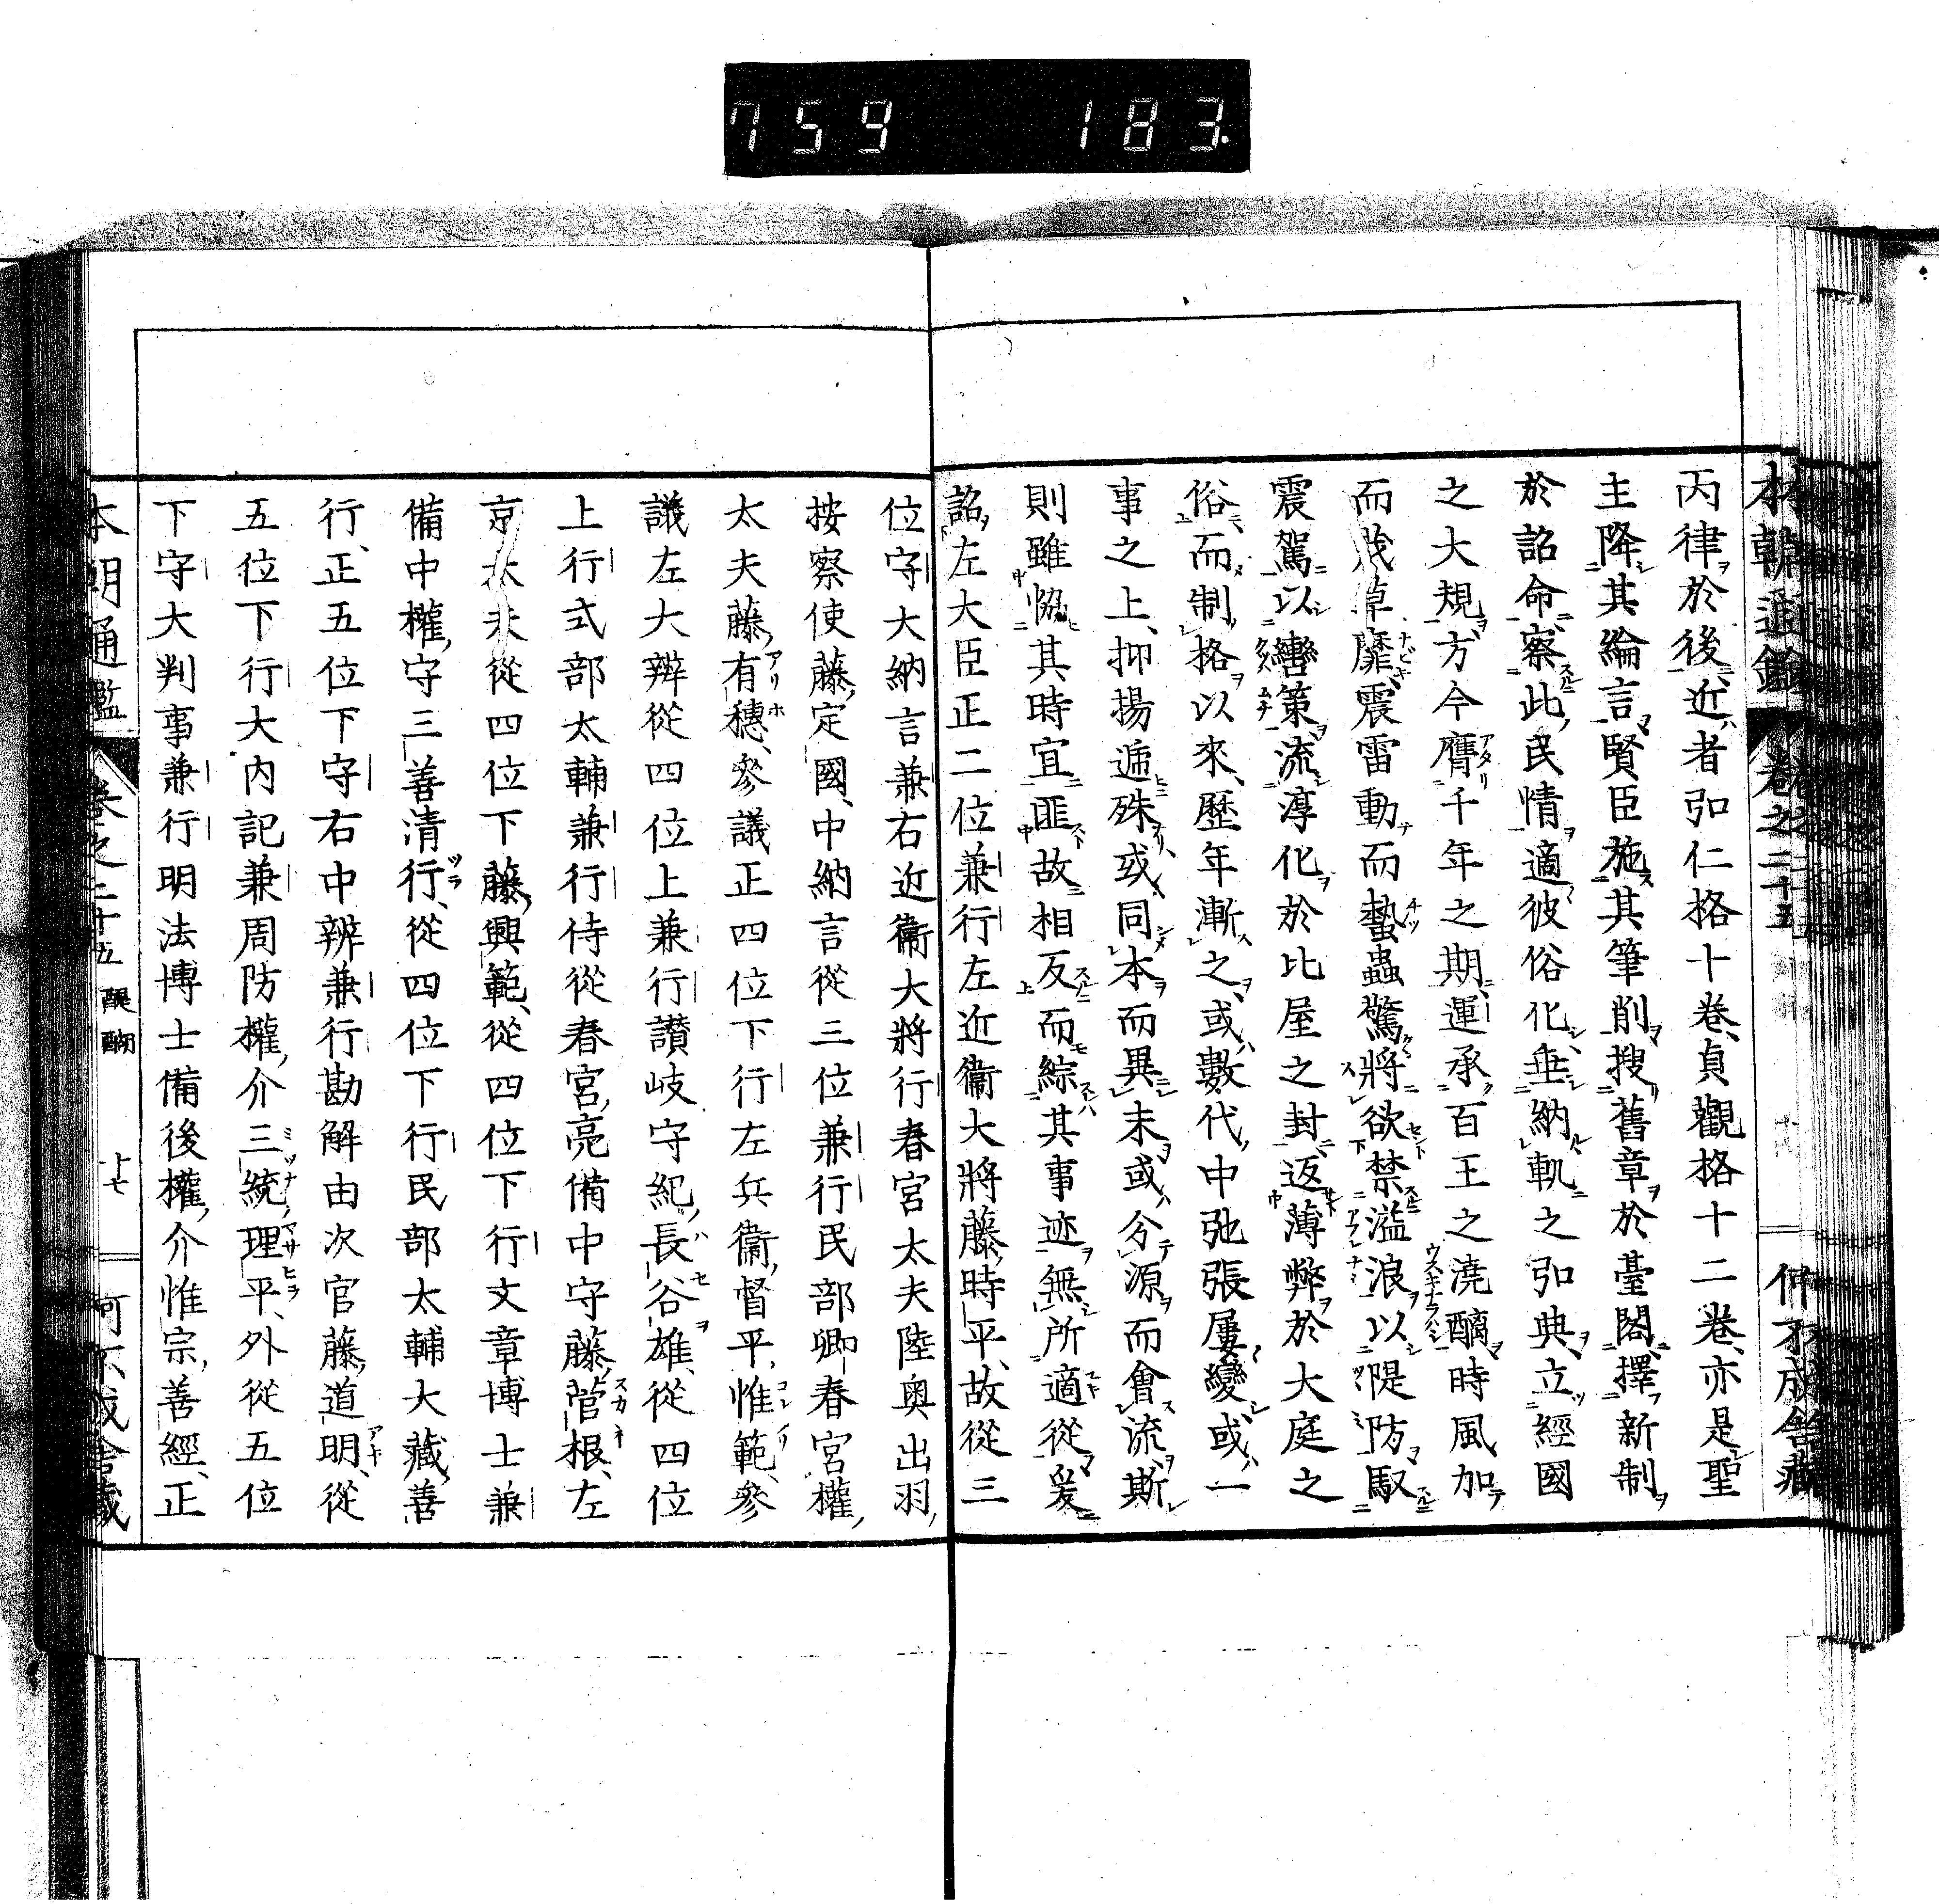 759 183.
本朝通鑑 卷之二十五 仲不成舍藏
丙律於後、近者弘仁格十卷、貞觀格十二卷、亦是聖
主降其綸言賢臣施其筆削搜舊章於臺閣擇新制
於詔命、察此民情適彼俗化、垂納軌之弘典、立經國
之大規、方今膺千年之期、運承百王之澆醨時風加
而草靡、震雷動而蟄蟲驚將欲禁濫浪以隄防馭
震駕以轡策流淳化於比屋之封返薄弊於大庭之
俗、而制格以來、歷年漸之、或數代中弛張屢變、或一
事之上、抑揚遞殊或同本而異末、或分源而會流、斯
則雖恊其時宜匪故相反而綜其事迹無所適從爰
詔左大臣正二位兼行左近衞大將藤時平、故從三
位守大納言兼右近衞大將行春宮太夫陸奥出羽
按察使藤定國、中納言從三位兼行民部卿春宮權
太夫藤有穗、參議正四位下行左兵衞督平惟範、參
議左大辨從四位上兼行讃岐守紀長谷雄、從四位
上行式部太輔兼行侍從春宮亮備中守藤菅根、左
京太夫從四位下藤興範、從四位下行文章博士兼
備中權守三善清行、從四位下行民部太輔大藏善
行、正五位下守右中辨兼行勘解由次官藤道明、從
五位下行大内記兼周防權介三統理平、外從五位
下守大判事兼行明法博士備後權介惟宗善經、正
本朝通鑑 卷之二十五 醍醐 十七